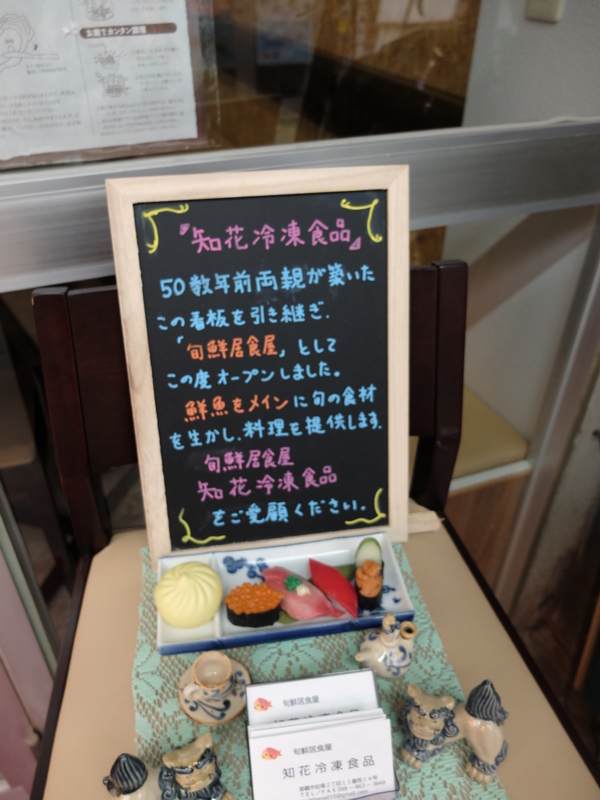 お家でカンタン調理
『知花冷凍食品』
50数年前両親が築いた
この看板を引き継ぎ、
「旬鮮居食屋」として
この度オープンしました。
鮮魚をメインに旬の食材
を生かし、料理を提供します。
旬鮮居食屋
知花冷凍食品
をご愛顧ください。
旬鮮居食屋
旬鮮居食屋
知花冷凍食品